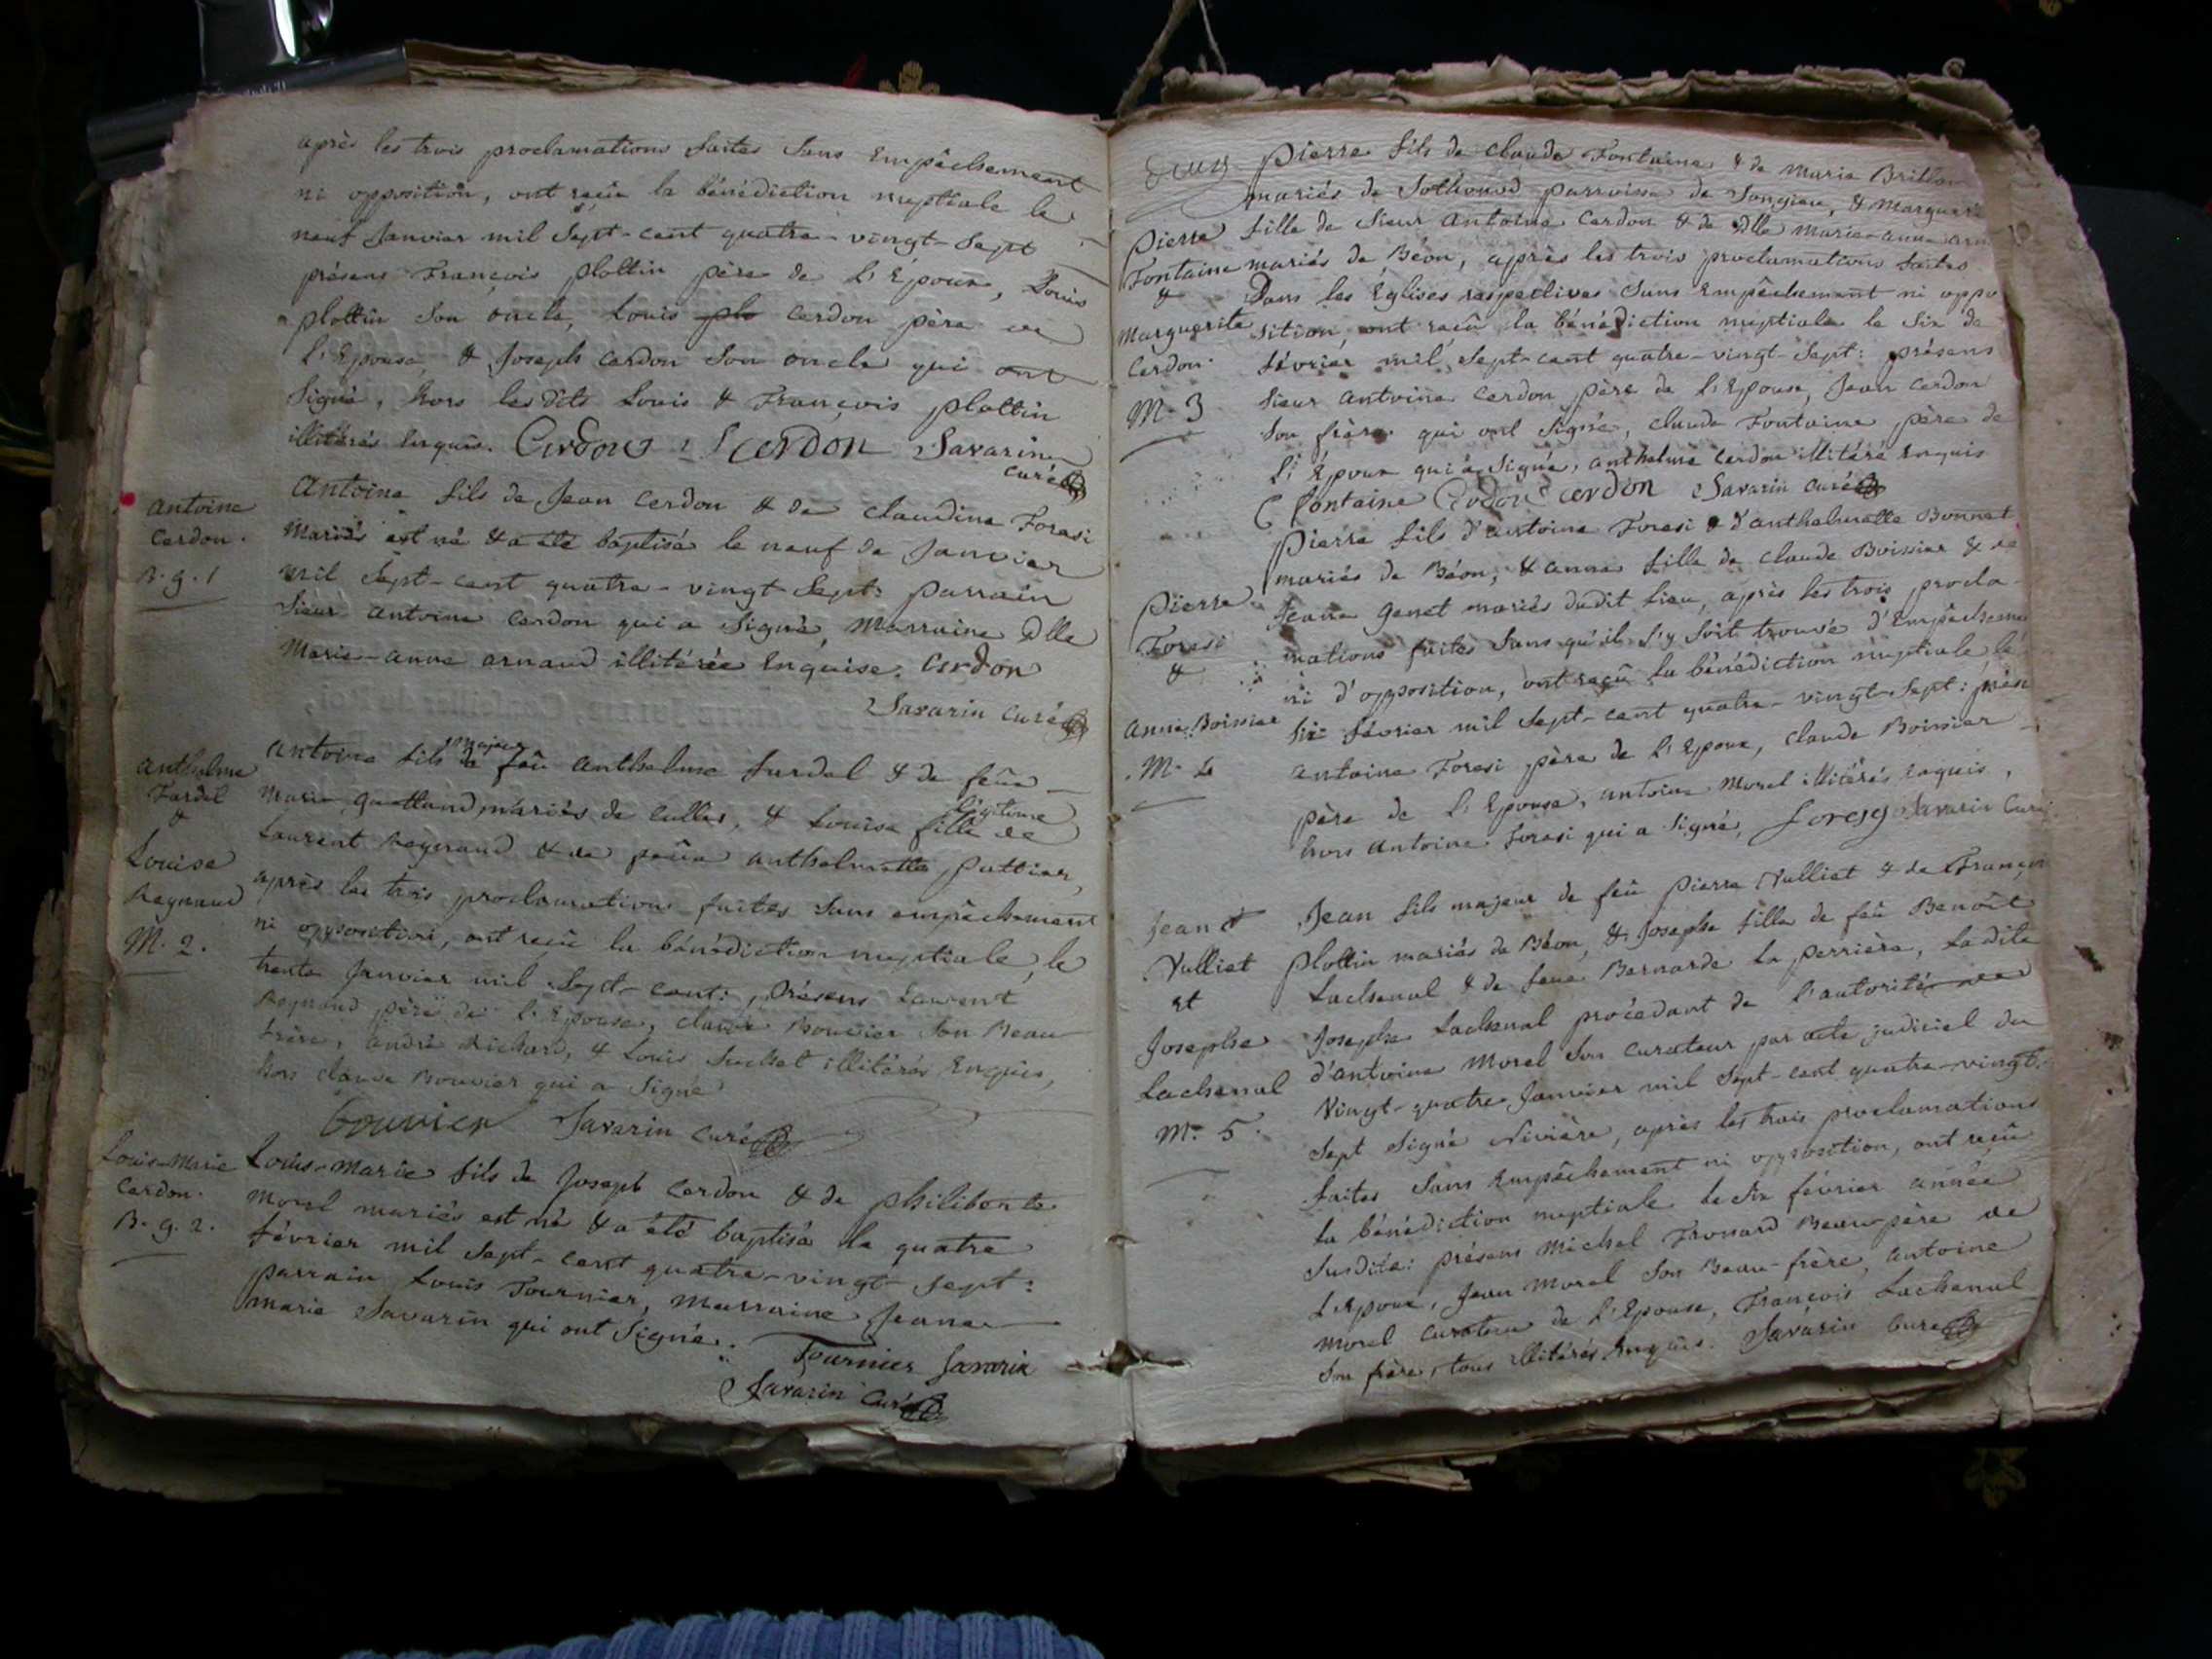 après les trois proclamations faites sans Empêchement
ni opposition, ont reçu la bénédiction nuptiale le
neuf Janvier mil sept-cent quatre-vingt-sept
présens François plottin père de l'Epoux, Louis
plottin son oncle, Louis plo cerdon père de
l'Epouse, & Joseph cerdon son oncle qui ont
signé, hors lesdits Louis & François plottin
illitérés Enquis. Cerdon cerdon Savarin
curé
Antoine
cerdon.
B. g. 1
Antoine fils de Jean cerdon & de claudine Forasi
mariés est né & a été baptisé le neuf de Janvier
mil sept-cent quatre-vingt sept: parrain
sieur antoine cerdon qui a signé, marraine Dlle
Marie-anne arnaud illitérée Enquise. cerdon
Savarin curé
Anthelme
Fardel
&
Louise
Reynaud
M. 2.
majeur
antoine fils de feû anthelme furdel & de feüe
légitime
Marie mariés de culles, & Louise fille de
Laurent Reynaud & de feüe anthelmette pattier,
après les trois proclamations faites sans empêchement
ni opposition, ont reçu la bénédiction nuptiale, le
trente Janvier mil sept-cent: présens Laurent
Reynaud père de l'Epouse, claude Bouvier son Beau
frère, andré Richard, & Louis suchet illitérés Enquis,
hors claude Bouvier qui a signé
Bouvier Savarin curé
Louis-Marie
cerdon.
B. g. 2.
Louis-marie fils de Joseph cerdon & de philiberte
Morel mariés est né & a été baptisé le quatre
février mil sept-cent quatre-vingt sept:
parrain Louis Fournier, marraine Jeane
marie Savarin qui ont signé.
Fournier Savarin
Savarin curé
deux
Pierre
Fontaine
&
Marguerite
cerdon.
M. 3
Pierre fils de claude Fontaine & de Marie Brillon
mariés de Sothonod parroisse de Songieu, & Marguerite
fille de sieur antoine cerdon & de Dlle marie-anne arn
mariés de Béon, après les trois proclamations faites
Dans les Eglises respectives sans Empêchement ni oppo
sition, ont reçû la bénédiction nuptiale le six de
février mil sept-cent quatre-vingt-sept: présens
sieur antoine cerdon père de l'Epouse, Jean cerdon
son frère qui ont signé, claude Fontaine père de
l'Epoux qui a signé, anthelme cerdon illitéré Enquis
C fontaine Cerdon cerdon Savarin curé
Pierre
Forasi
&
anne Boissier
M. 4
Pierre fils d'antoine Forasi & d'anthelmette Bonnet
mariés de Béon, & anne fille de claude Boissier & de
Jeane Genet mariés dudit lieu, après les trois procla-
mations faites sans qu'il s'y soit trouvé d'Empêchement
ni d'opposition, ont reçû la bénédiction nuptiale le
six février mil sept-cent quatre-vingt-sept: présen
antoine Forasi père de l'Epoux, claude Boissier
père de l'Epouse, antoine Morel illitérés enquis,
hors antoine Forasi qui a signé, Savarin Curé
Jean
Vulliet
et
Josephe
Lachenal
M. 5.
Jean fils majeur de feû pierre Vulliet & de François
plottin mariés de Béon, & Josephe fille de feû Benoît
Lachenal & de feue Bernarde La perrière, Ladite
Josephe Lachenal procédant de l'autorité de
d'antoine Morel son curateur par acte judiciel du
Vingt-quatre Janvier mil sept-cent quatre-vingt-
sept signé Nivière, après les trois proclamations
faites sans Empêchement ni opposition, ont reçû
la bénédiction nuptiale le six février année
susdite: présens Michel Tronard Beau-père de
l'Epoux, Jean Morel son Beau-frère, antoine
Morel curateur de l'Epouse, François Lachenal
son frère, tous illitérés Enquis. Savarin curé